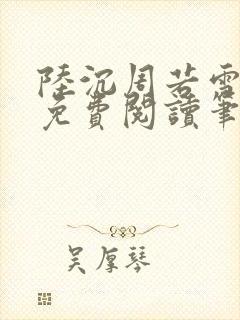 陸沉周若雪
免費閱讀筆
吴厚琴